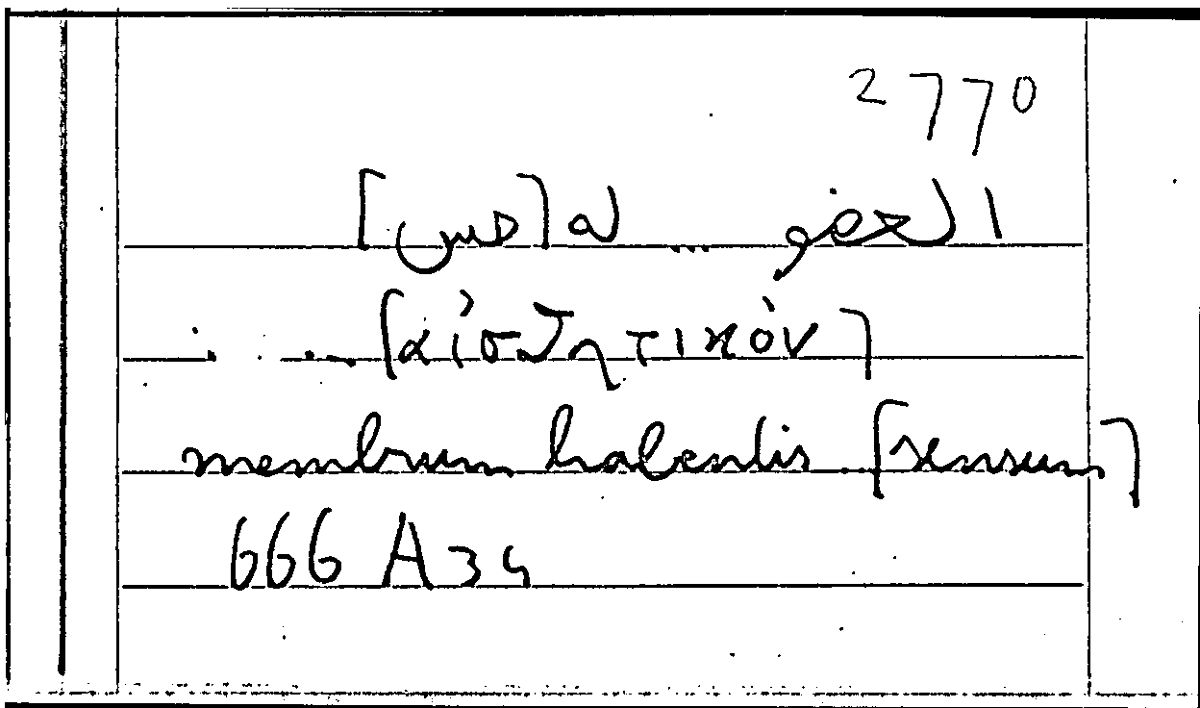 2770
العضو ... له [حس]
... [αἰσθητικόν]
membrum habentis [sensum]
666 A 34